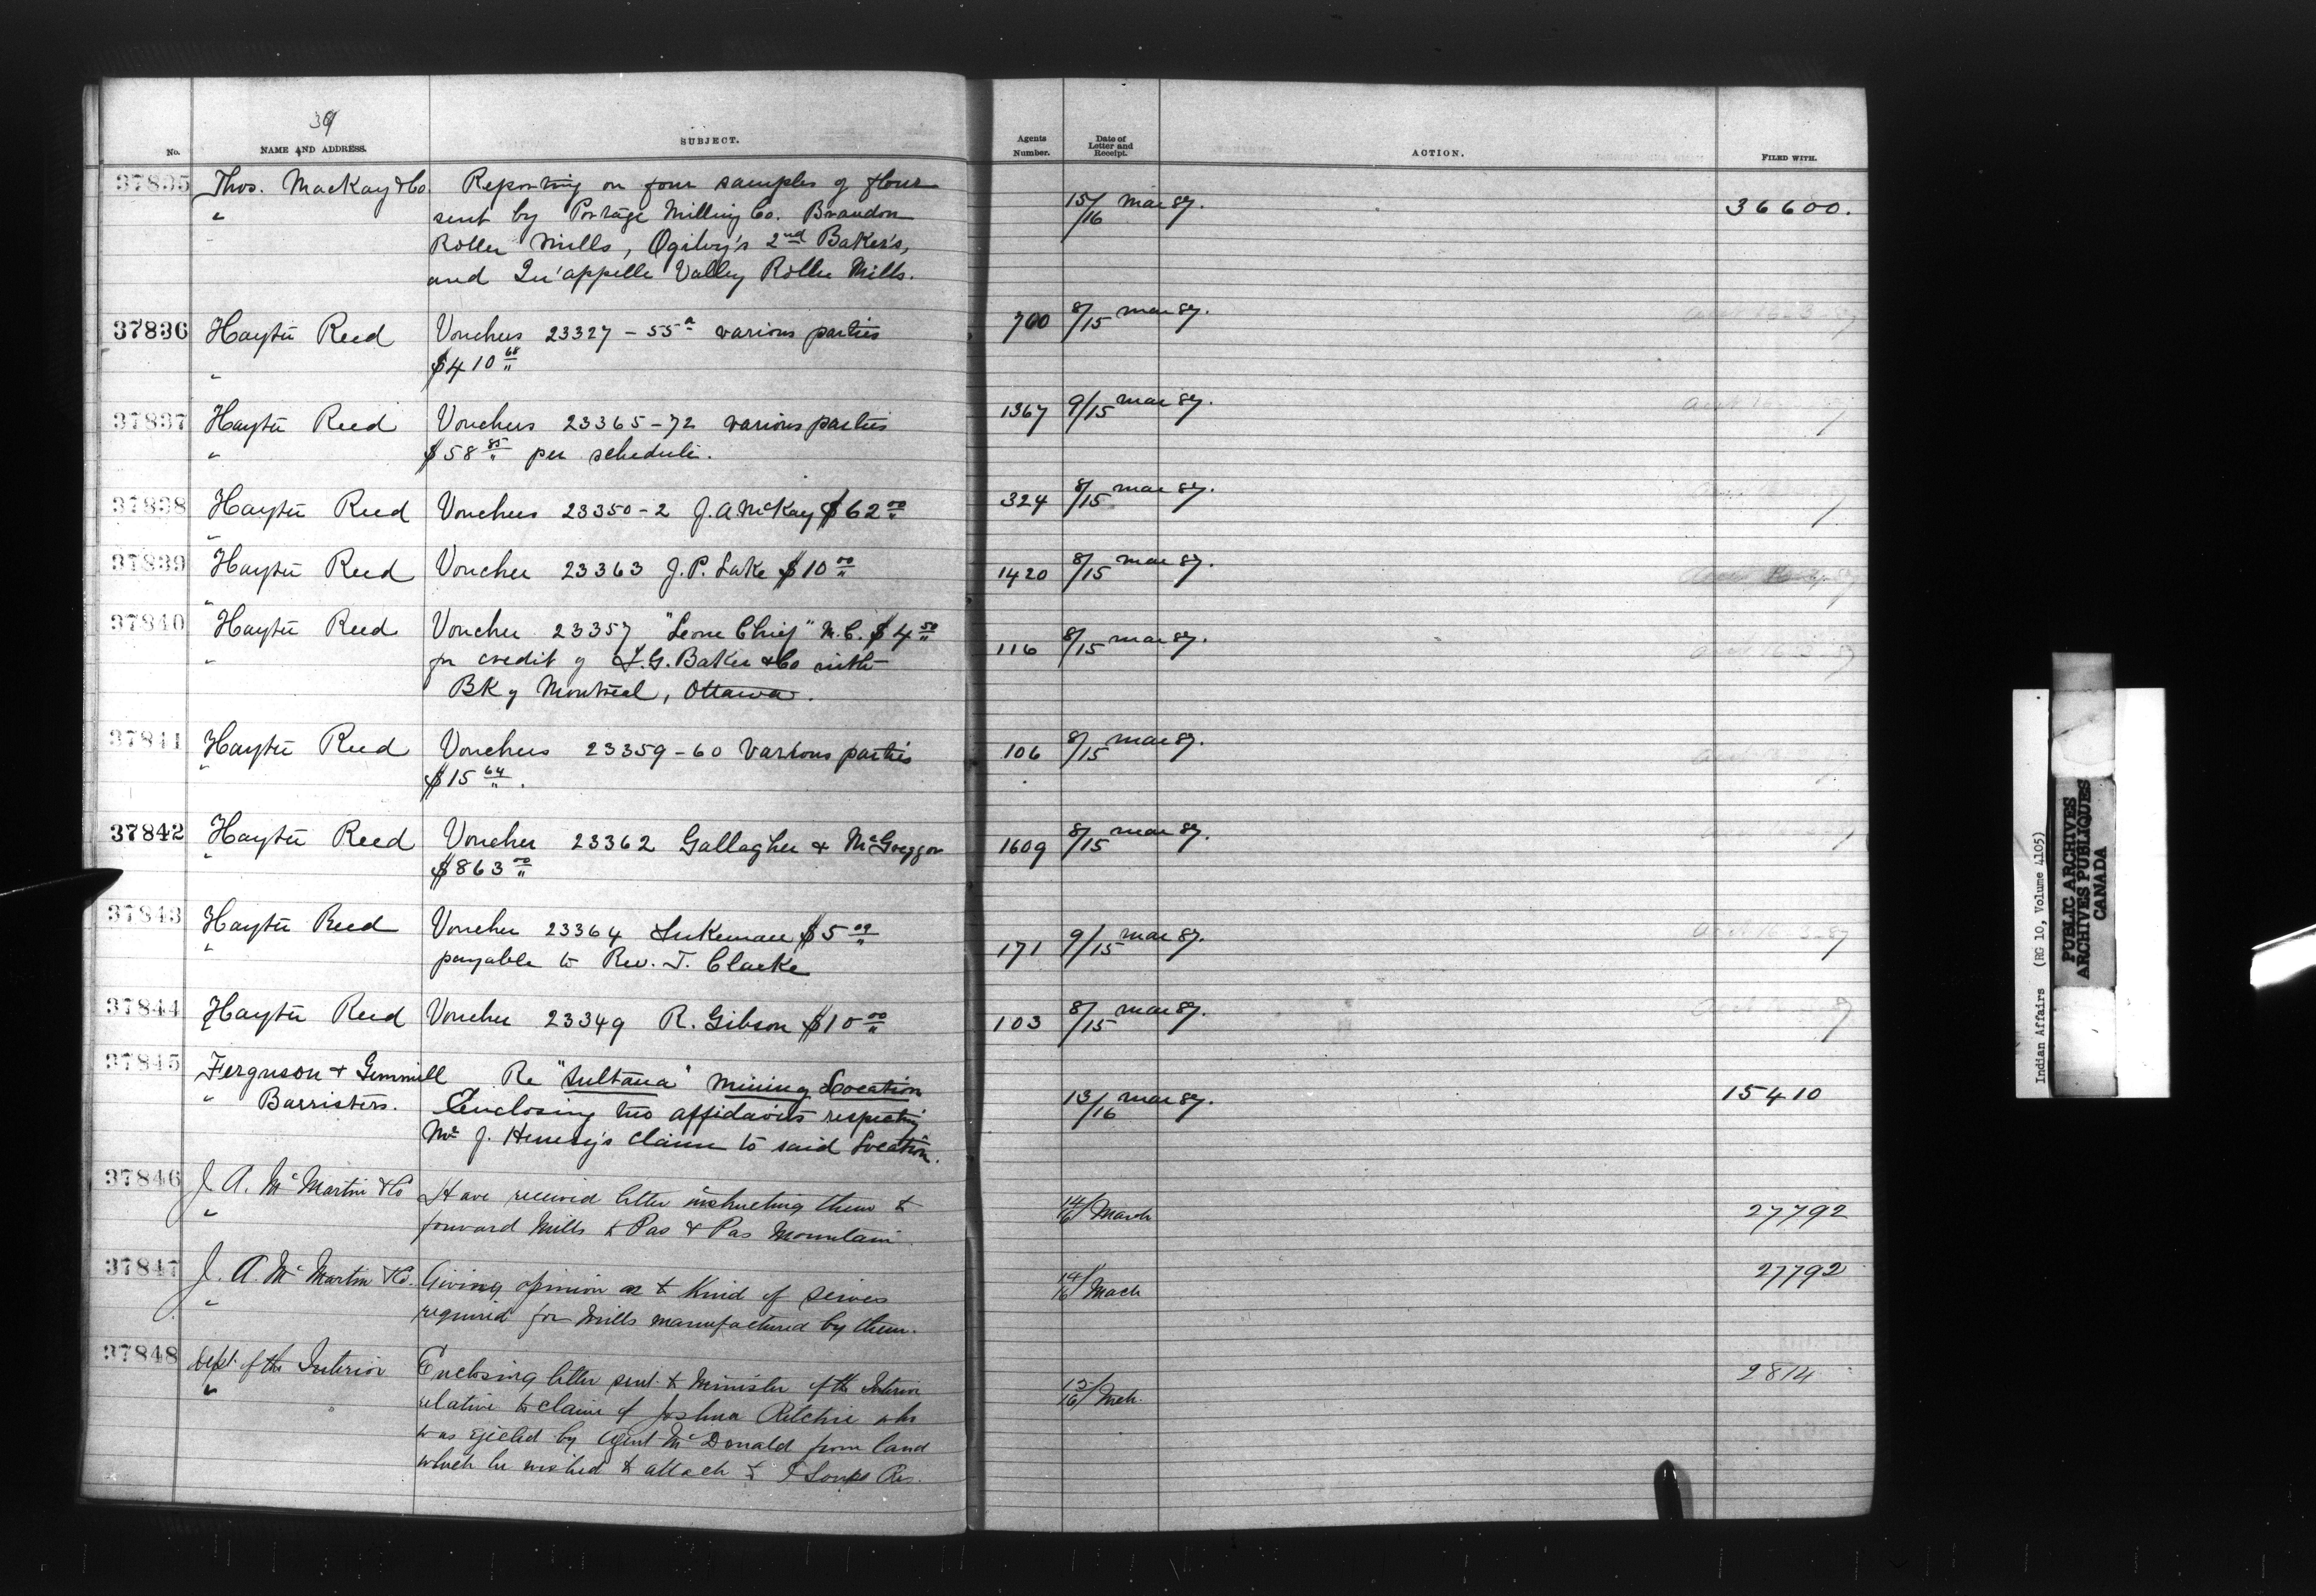 39
No. NAME AND ADDRESS. SUBJECT. Agents Number. Date of Letter and Receipt. ACTION. FILED WITH.
37835 Thos. MacKay & Co Reporting on four samples of flour 15/16 Mar 87. 36600.
" sent by Portage Milling Co. Brandon
Roller Mills, Ogilvy's 2nd Baker's,
and Qu'appelle Valley Roller Mills.
37836 Hayter Reed Vouchers 23327 - 55a various parties 700 8/15 Mar 87. 16-3-87
" $410 68
37837 Hayter Reed Vouchers 23365-72 various parties 1367 9/15 Mar 87.
" $58 85 per schedule.
37838 Hayter Reed Vouchers 23350-2 J.A. McKay $62 00 324 8/15 Mar 87.
"
37839 Hayter Reed Voucher 23363 J.P. Lake $10 00 1420 8/15 Mar 87.
"
37840 Hayter Reed Voucher 23357 "Leone Chief" N.C. $4 50 116 8/15 Mar 87. 16-3-87
" for credit of I.G. Baker & Co with
Bk of Montreal, Ottawa.
37841 Hayter Reed Vouchers 23359-60 Various parties 106 8/15 Mar 87.
" $15 64.
37842 Hayter Reed Voucher 23362 Gallagher & McGreggor 1609 8/15 Mar 87.
" $863 00
37843 Hayter Reed Voucher 23364 Lukeman $5 00 171 9/15 Mar 87. 16-3-87
" payable to Rev. J. Clarke
37844 Hayter Reed Voucher 23349 R. Gibson $10 00 103 8/15 Mar 87.
37845 Ferguson & Gemmill Re "Sultana" Mining Location 13/16 Mar 87. 15410
" Barristers. Enclosing two affidavits respecting
Mr J. Henesy's claim to said Location.
37846 J A. McMartin & Co Have received letter instructing them to 14/16 March 27792
" forward Mills to Pas & Pas Mountain
37847 J. A. McMartin & Co. Giving opinion as to Kind of Seives 14/16 Mach 27792
" required for Mills manufactured by them.
37848 Dept. of the Interior Enclosing letter sent to Minister of the Interior 15/16 Mch. 2814
" relative to claim of Joshua Ritchie who
was ejected by Agent McDonald from land
which he wished to attach to Loups Res.
Indian Affairs (RG 10, Volume 4105)
PUBLIC ARCHIVES
ARCHIVES PUBLIQUES
CANADA